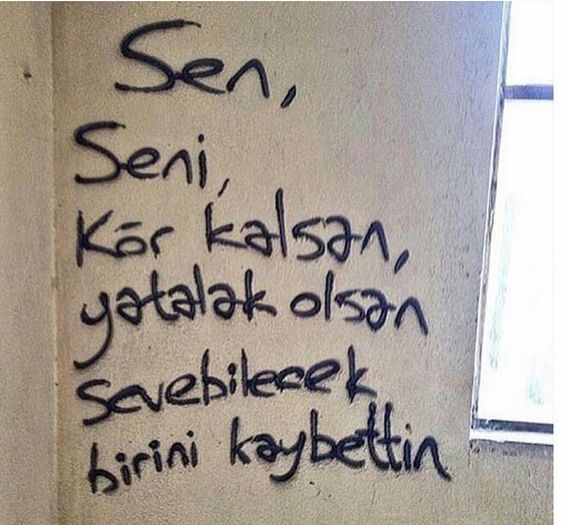 Sen,
Seni,
Kör kalsan,
yatalak olsan
sevebilecek
birini kaybettin